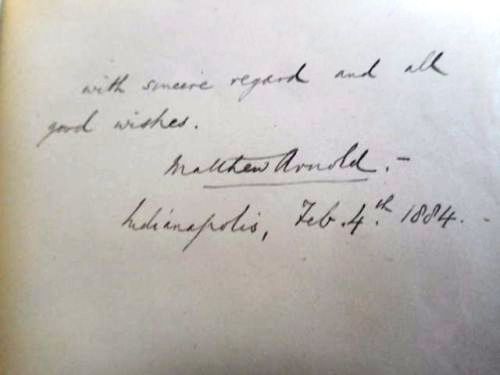 with sincere regard and all
good wishes.
Matthew Arnold.–
Indianapolis, Feb. 4th. 1884.